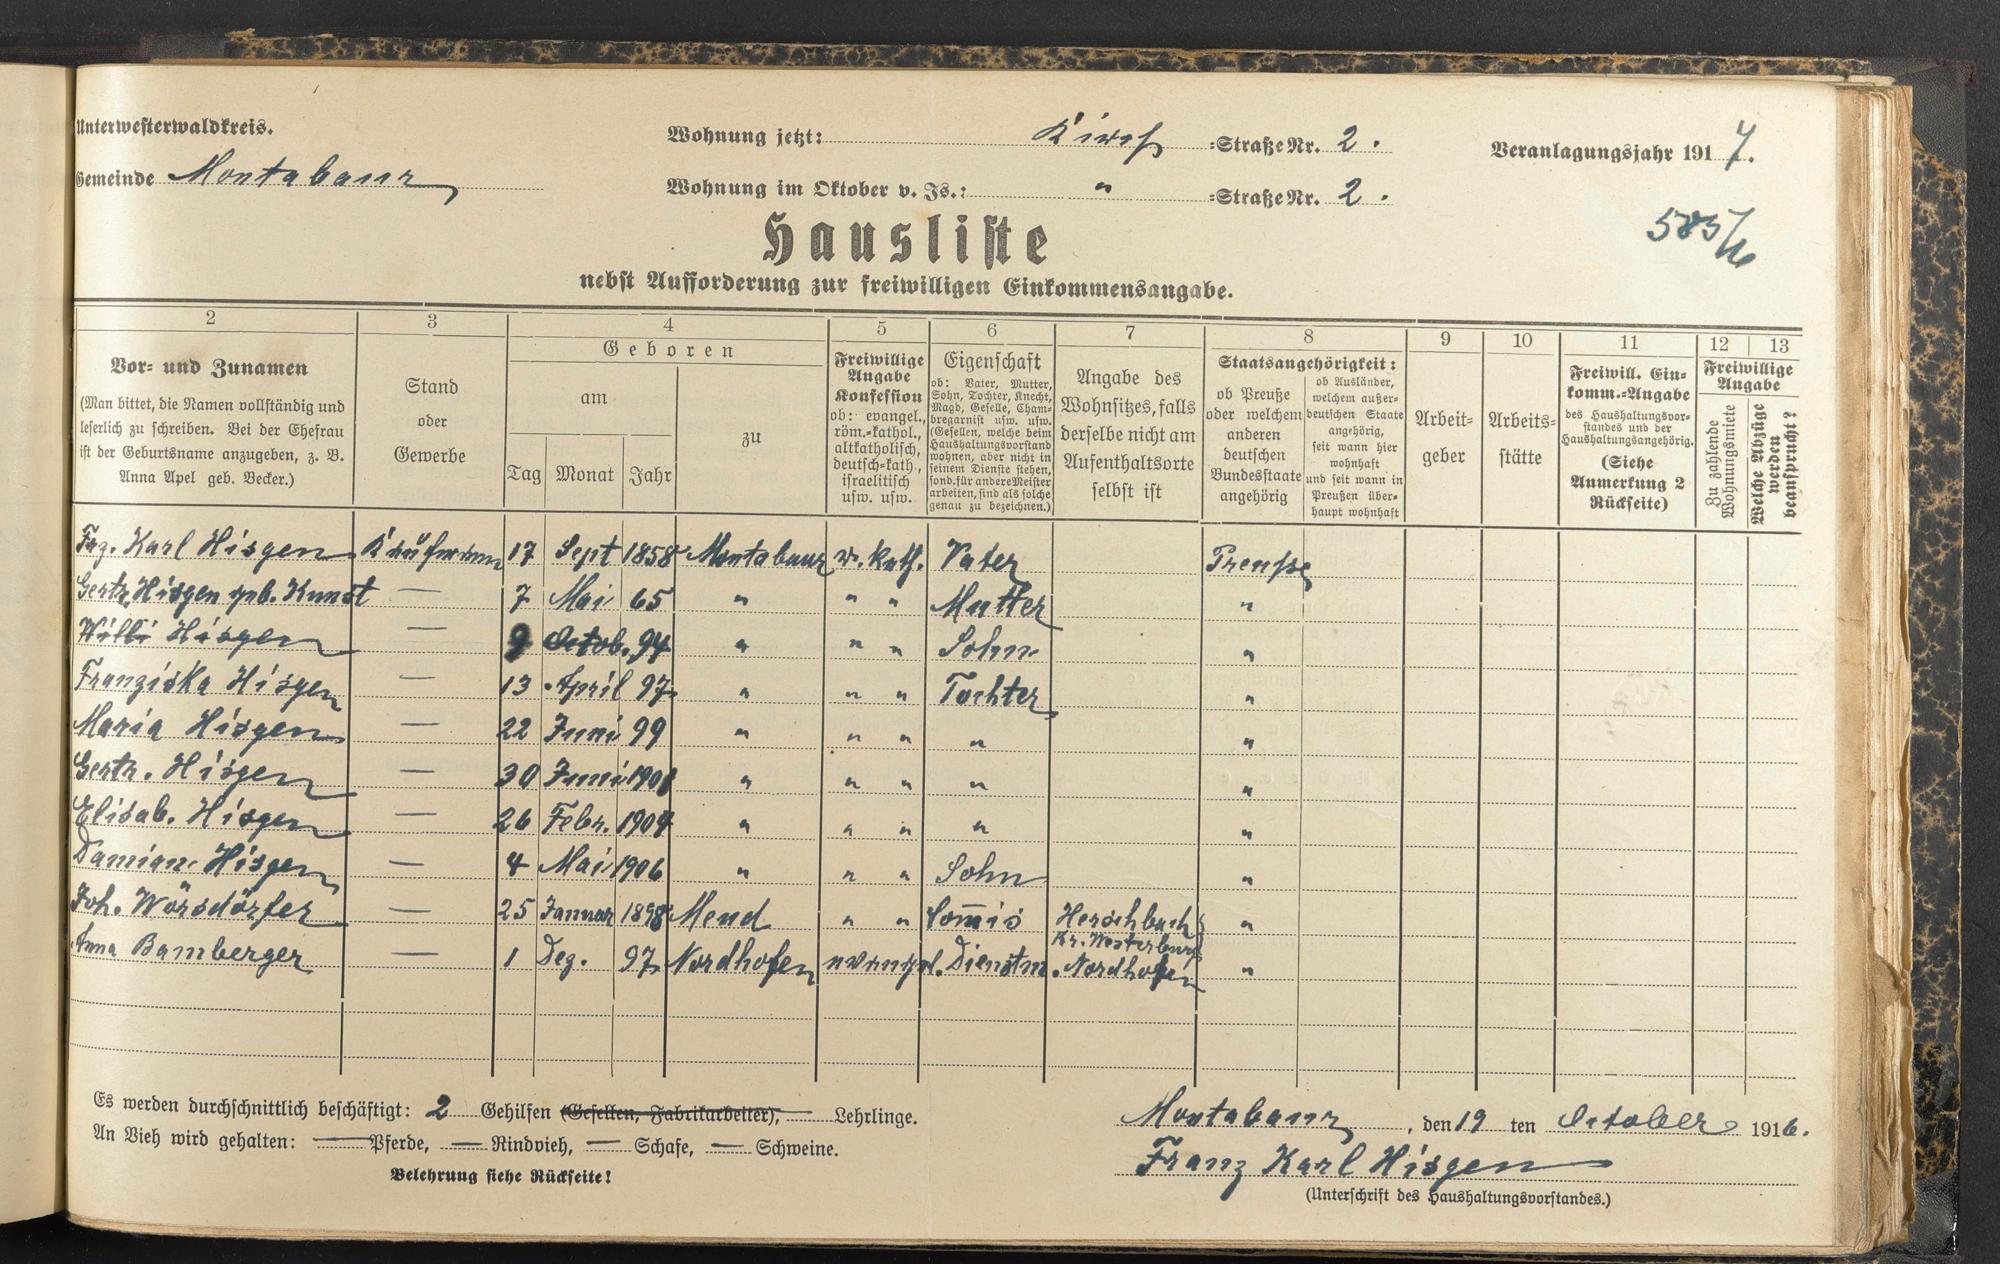 Unterwesterwaldkreis.
Gemeinde Montabaur
Wohnung jetzt: Kirch =Straße Nr. 2.
Wohnung im Oktober v. Js.: " =Straße Nr. 2.
Veranlagungsjahr 1917.
Hausliste
nebst Aufforderung zur freiwilligen Einkommensangabe.
2 3 4 5 6 7 8 9 10 11 12 13
Vor- und Zunamen
(Man bittet, die Namen vollständig und
leserlich zu schreiben. Bei der Ehefrau
ist der Geburtsname anzugeben, z. B.
Anna Apel geb. Becker.)
Stand
oder
Gewerbe
Geboren
am
Tag Monat Jahr
zu
Freiwillige
Angabe
Konfession
ob: evangel.,
röm.-kathol.,
altkatholisch,
deutsch-kath.,
israelitisch
usw. usw.
Eigenschaft
ob: Vater, Mutter,
Sohn, Tochter, Knecht,
Magd, Geselle, Cham-
bregarnist usw. usw.
(Gesellen, welche beim
Haushaltungsvorstand
wohnen, aber nicht in
seinem Dienste stehen,
sond. für andere Meister
arbeiten, sind als solche
genau zu bezeichnen.)
Angabe des
Wohnsitzes, falls
derselbe nicht am
Aufenthaltsorte
selbst ist
Staatsangehörigkeit:
ob Preuße
oder welchem
anderen
deutschen
Bundesstaate
angehörig
ob Ausländer,
welchem außer-
deutschen Staate
angehörig,
seit wann hier
wohnhaft
und seit wann in
Preußen über-
haupt wohnhaft
Arbeit-
geber
Arbeits-
stätte
Freiwill. Ein-
komm.-Angabe
des Haushaltungsvor-
standes und der
Haushaltungsangehörig.
(Siehe
Anmerkung 2
Rückseite)
Freiwillige
Angabe
Zu zahlende
Wohnungsmiete
Welche Abzüge
werden
beansprucht?
Frz. Karl Hisgen Kaufmann 17 Sept 1858 Montabaur r. kath. Vater Preuße
Gertr. Hisgen geb. Kunst — 7 Mai 65 " " " Mutter "
Willi Hisgen — 9 Octob. 94 " " " Sohn "
Franziska Hisgen — 13 April 97 " " " Tochter "
Maria Hisgen — 22 Juni 99 " " " " "
Gertr. Hisgen — 30 Juni 1901 " " " " "
Elisab. Hisgen — 26 Febr. 1904 " " " " "
Damian Hisgen — 4 Mai 1906 " " " Sohn "
Joh. Wörsdörfer — 25 Januar 1898 Mend " " Com̅is Herschbach "
Kr. Westerburg
Anna Bamberger — 1 Dez. 97 Nordhofen evangel. Dienstm. Nordhofen "
Es werden durchschnittlich beschäftigt: 2 Gehilfen (Gesellen, Fabrikarbeiter), — Lehrlinge.
An Vieh wird gehalten: — Pferde, — Rindvieh, — Schafe, — Schweine.
Belehrung siehe Rückseite!
Montabaur, den 19 ten October 1916.
Franz Karl Hisgen
(Unterschrift des Haushaltungsvorstandes.)